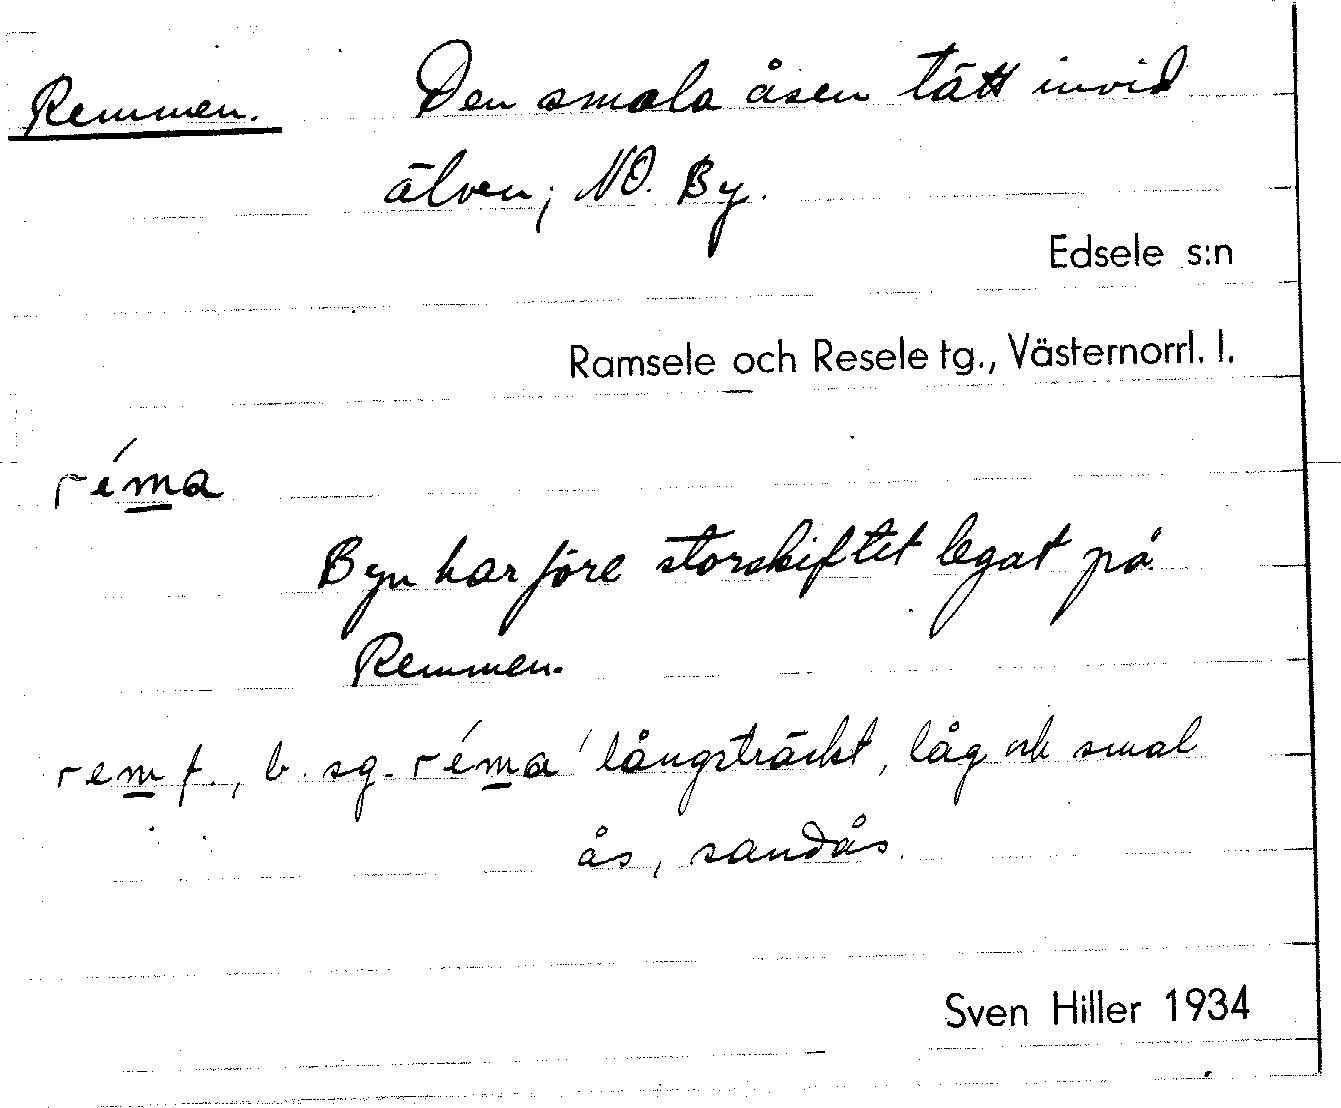 Remmen. Den smala åsen tätt invid
älven; NO. By.
Edsele s:n
Ramsele och Resele tg., Västernorrl. l.
réma
Byn har före storskiftet legat på
Remmen.
rem f., b. sg. réma 'långsträckt, låg och smal
ås, sandås.
Sven Hiller 1934